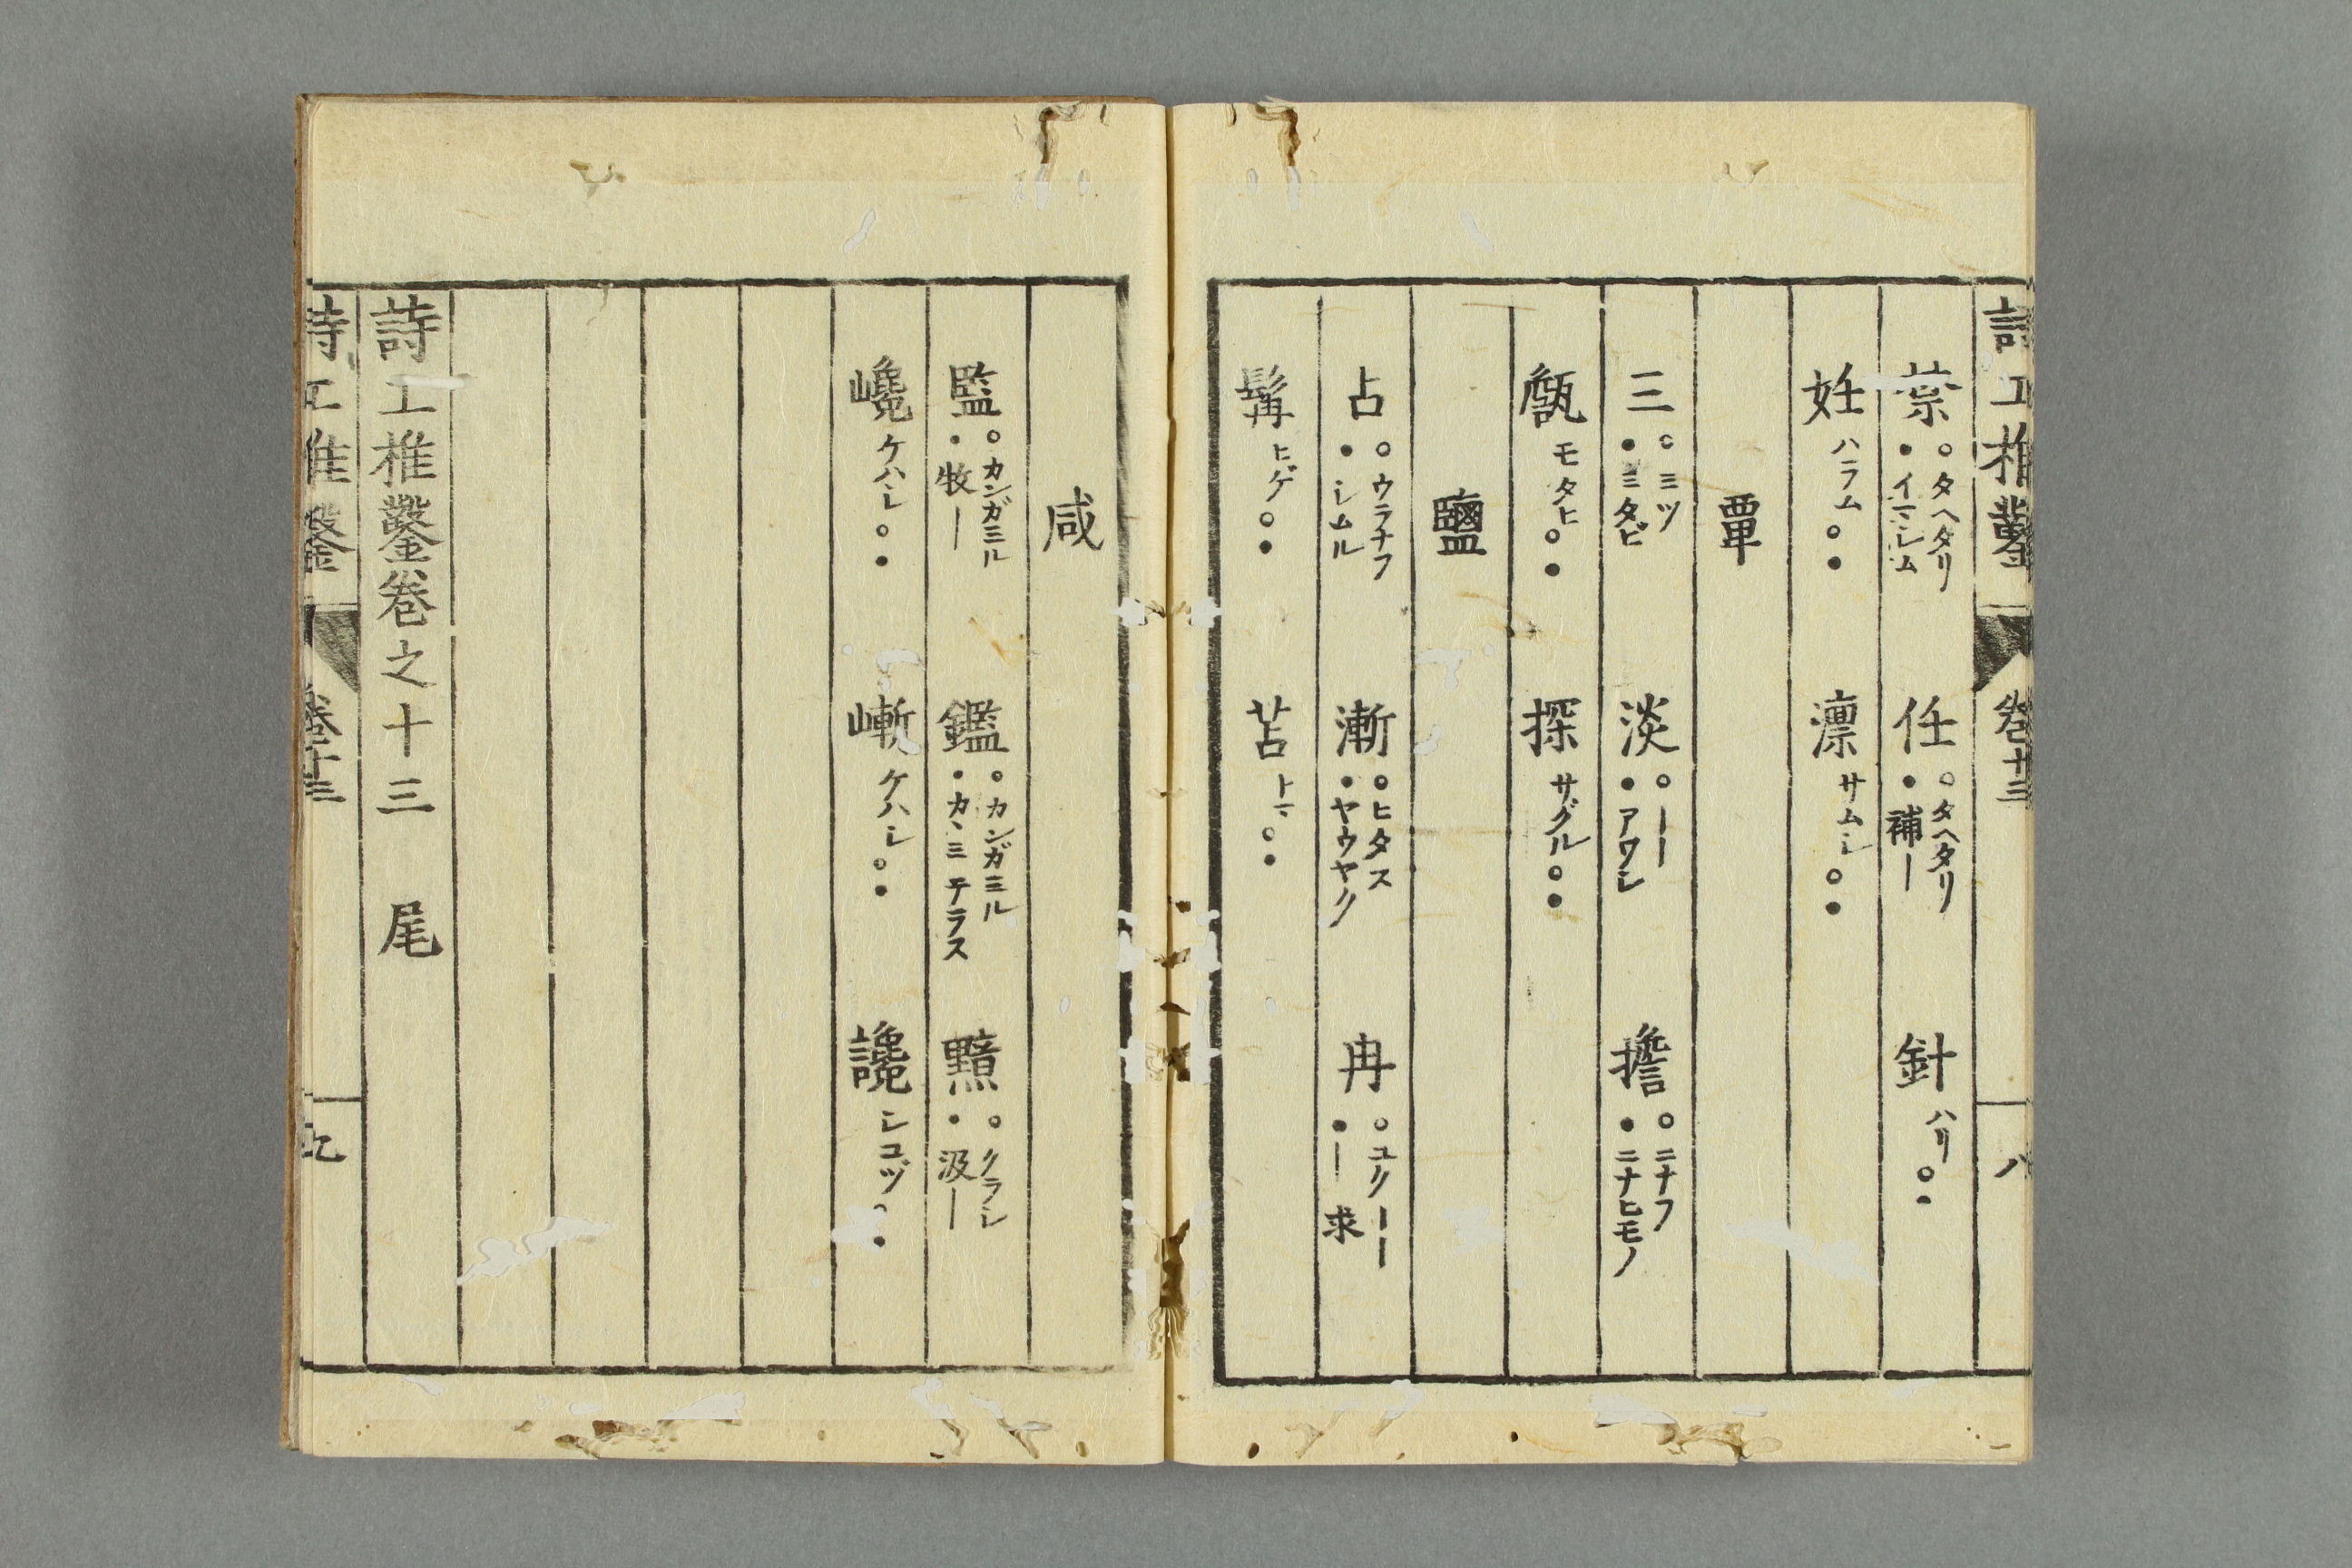 詩工椎鑿 卷十三 八
禁 ○タヘタリ ●イマシム 任 ○タヘタリ ●補｜ 針 ハリ○●
妊 ハラム○● 凛 サムシ○●
覃
三 ○ミツ ●ミタビ 淡 ○｜｜ ●アワシ 擔 ○ニナフ ●ニナヒモノ
甔 モタヒ○● 探 サグル○●
鹽
占 ○ウラナフ ●シムル 漸 ○ヒタス ●ヤウヤク 冉 ○ユク｜｜ ●｜求
髯 ヒゲ○● 苫 トマ○●
咸
監 ○カンガミル ●牧｜ 鑑 ○カンガミル ●カヽミテラス 黶 ○クラシ ●汲｜
巉 ケハシ○● 嶄 ケハシ○● 讒 シコヅ○●
詩工椎鑿卷之十三 尾
詩工椎鑿 卷十三 九